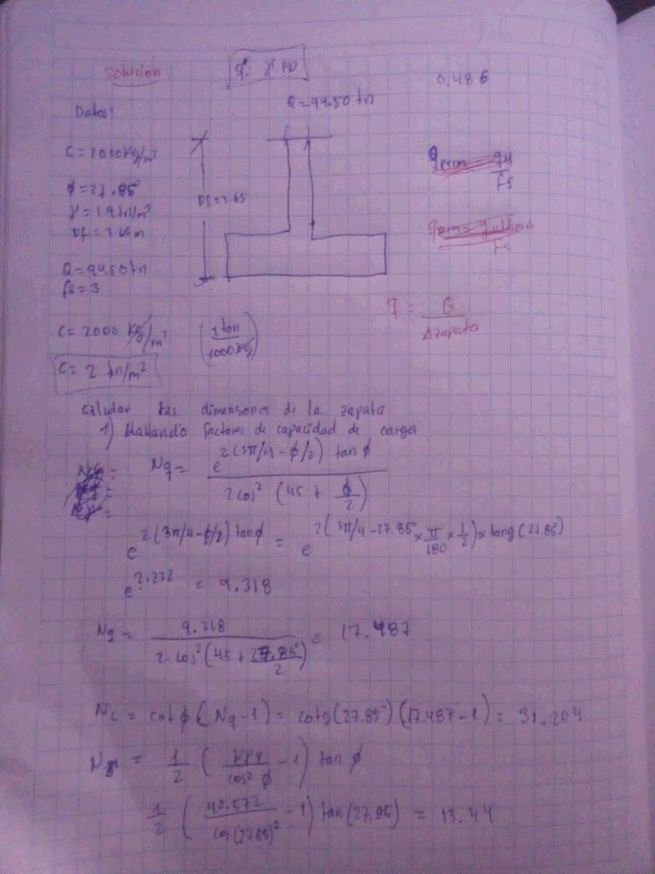 Solución
q = γ * D
0,486
Q = 94.50 tn
Datos:
C = 2000 kg/m²
φ = 27.85°
γ = 1.9 tn/m³
Df = 3.65m
Q = 94.50 tn
fs = 3
Df = 3.65
q = Q / Azapata
C = 2000 kg/m² (1 ton / 1000 kg)
C = 2 tn/m²
Calcular las dimensiones de la zapata
1) Hallando factores de capacidad de carga
Nq = e^2(3π/4 - φ/2) tan φ / 2 cos² (45 + φ/2)
e^2(3π/4 - φ/2) tanφ = e^2(3π/4 - 27.85° × π/180 × 1/2) × tang (27.85)
e^2.232 = 9.318
Nq = 9.318 / 2 cos² (45 + 27.85°/2) = 17.487
Nc = cot φ (Nq - 1) = cotg (27.85°) (17.487 - 1) = 31.204
Nγ = 1/2 (kpγ / cos² φ - 1) tan φ
1/2 (40.572 / cos (27.85)² - 1) tan (27.85) = 13.44